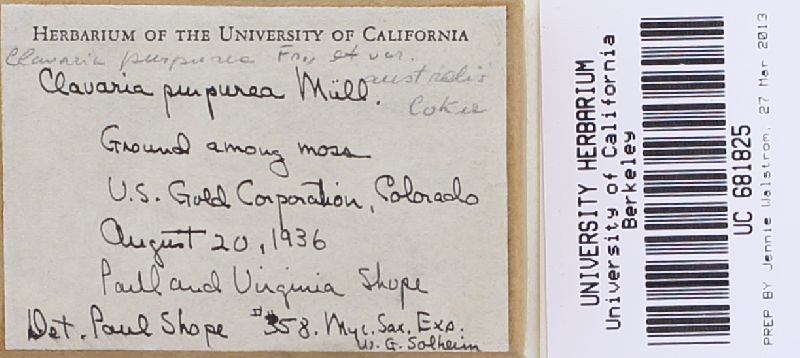 HERBARIUM OF THE UNIVERSITY OF CALIFORNIA
Clavaria purpurea Fr., et var.
australis
Coker
Clavaria purpurea Müll.
Ground among moss
U.S. Gold Corporation, Colorado
August 20, 1936
Paul and Virginia Shope
Det. Paul Shope #358. Myc. Sax. Exs.
W. G. Solheim
UNIVERSITY HERBARIUM
University of California
Berkeley
UC 681825
PREP BY Jennie Walstrom, 27 Mar 2013